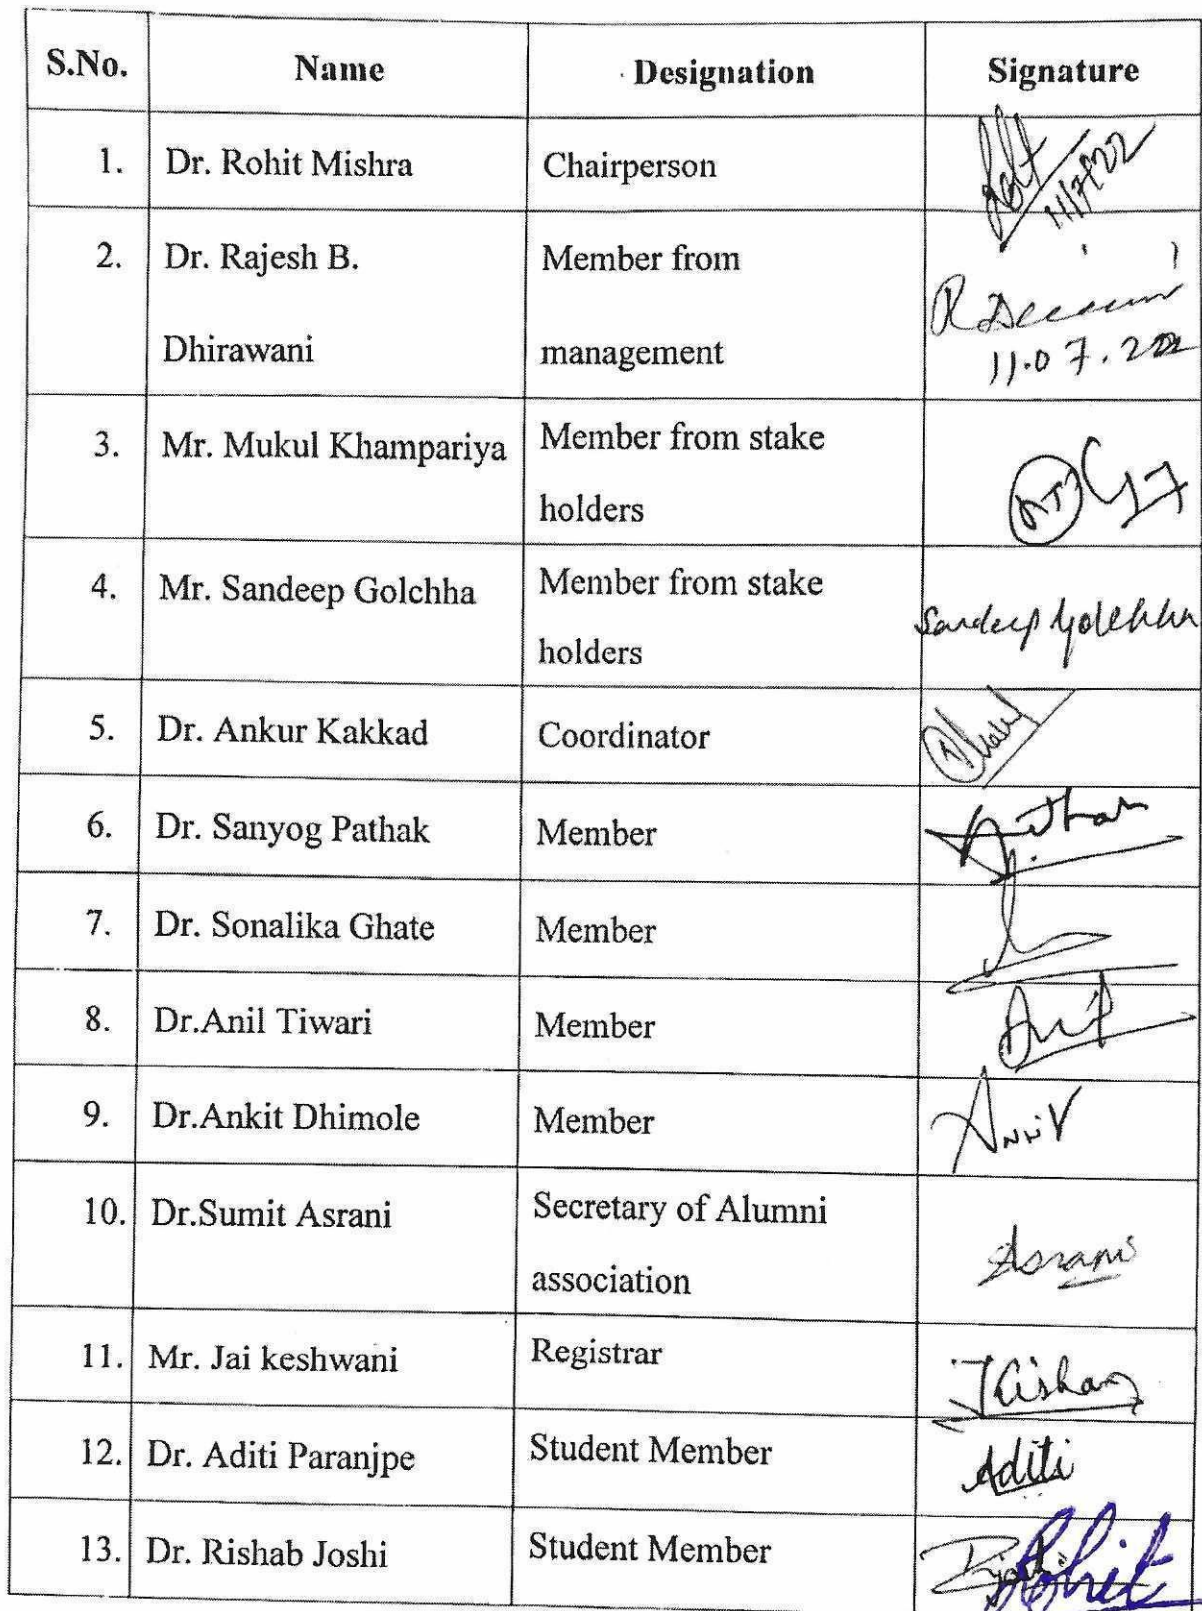 S.No. Name Designation Signature
1. Dr. Rohit Mishra Chairperson
11/7/22
2. Dr. Rajesh B. Member from
Dhirawani management
11.07.202
3. Mr. Mukul Khampariya Member from stake
holders
4. Mr. Sandeep Golchha Member from stake
holders
Sandeep Golchha
5. Dr. Ankur Kakkad Coordinator
6. Dr. Sanyog Pathak Member
7. Dr. Sonalika Ghate Member
8. Dr.Anil Tiwari Member
9. Dr.Ankit Dhimole Member
10. Dr.Sumit Asrani Secretary of Alumni
association
Asrani
11. Mr. Jai keshwani Registrar
12. Dr. Aditi Paranjpe Student Member Aditi
13. Dr. Rishab Joshi Student Member Rohit